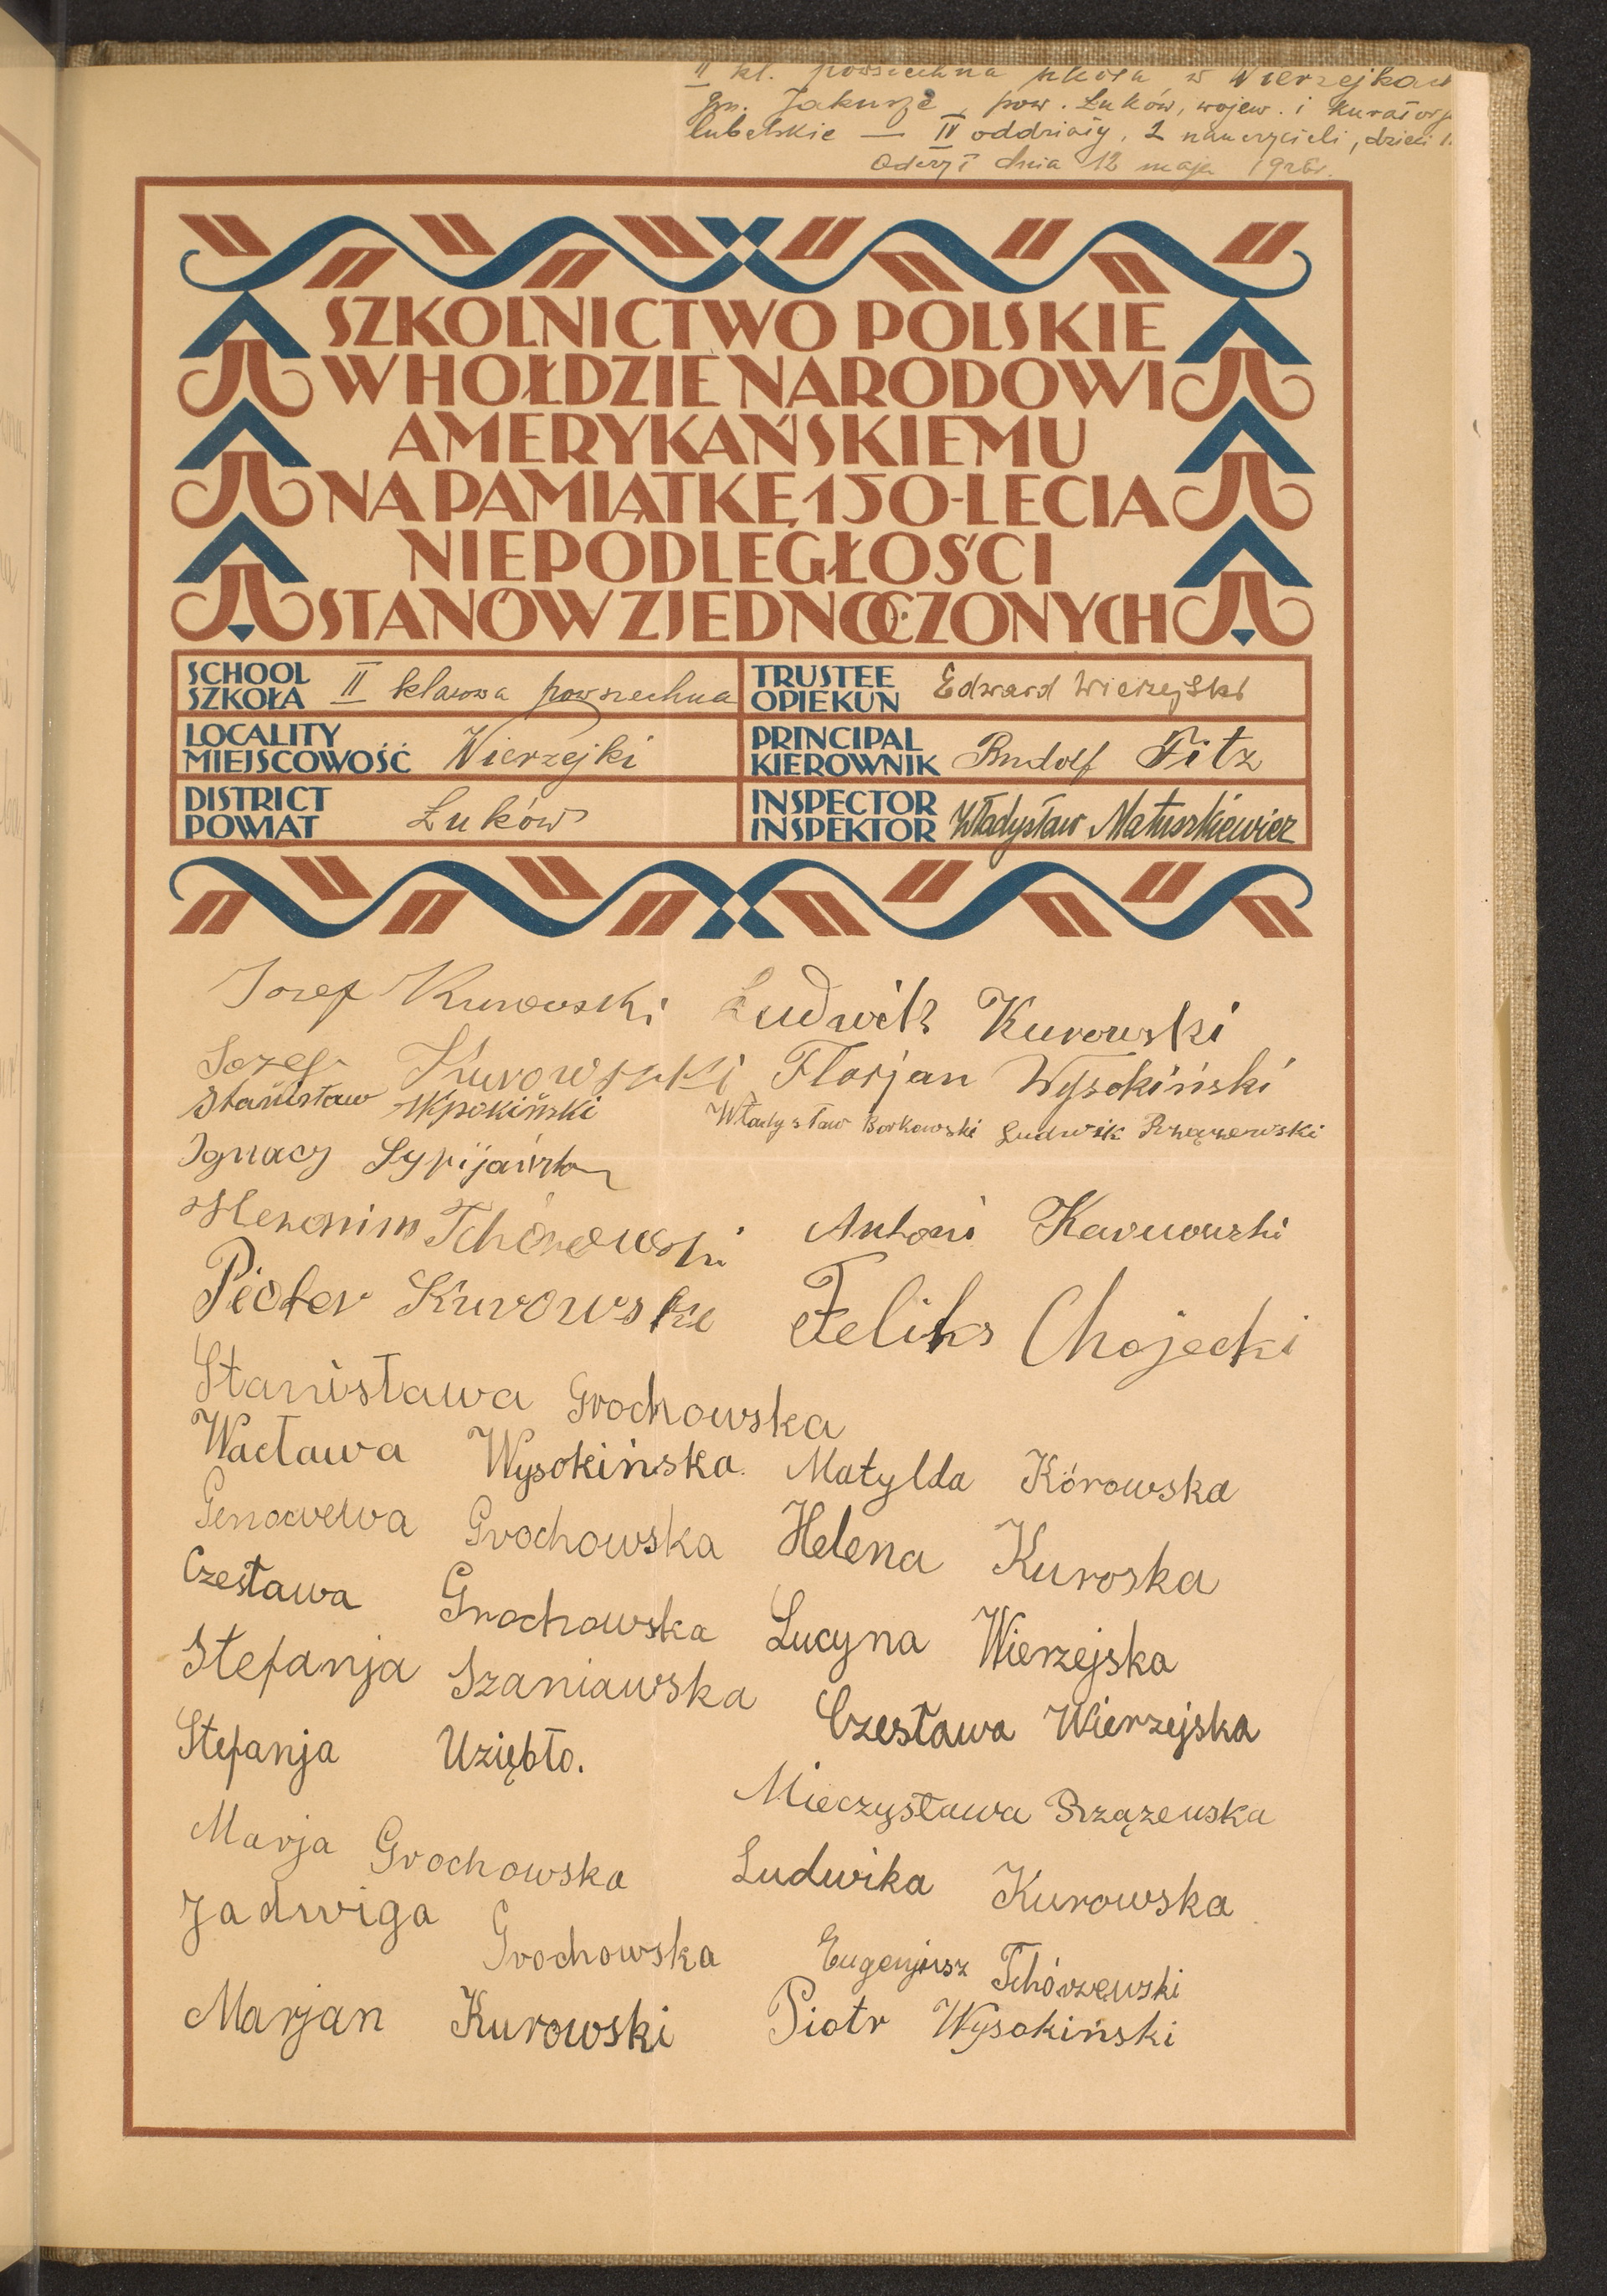 II kl. powszechna szkoła w Wierzejkach
gm. Zakurze, pow. Łuków, wojew. i kurator
lubelskie — IV oddziały, 2 nauczycieli, dzieci
dnia 12 maja 1926r.
SZKOLNICTWO POLSKIE
W HOŁDZIE NARODOWI
AMERYKAŃSKIEMU
NA PAMIĄTKĘ 150-LECIA
NIEPODLEGŁOŚCI
STANÓW ZJEDNOCZONYCH
SCHOOL
SZKOŁA II klasowa powszechna
TRUSTEE
OPIEKUN Edward Wierzejski
LOCALITY
MIEJSCOWOŚĆ Wierzejki
PRINCIPAL
KIEROWNIK Rudolf Fitz
DISTRICT
POWIAT Łuków
INSPECTOR
INSPEKTOR Władysław Matuszkiewicz
Jozef Kurowski Ludwik Kurowski
Jozef Kurowski Florjan Wysokiński
Stanisław Wysokiński Władysław Borkowski Ludwik Rzążewski
Ignacy
Heronim Antoni Karwowski
Pioter Kurowski Feliks Chojecki
Stanisława Grochowska
Wacława Wysokińska Matylda Kórowska
Genowewa Grochowska Helena Kuroska
Czesława Grochowska Lucyna Wierzejska
Stefanja Szaniawska Czesława Wierzejska
Stefanja Uziębło.
Mieczysława Rzązewska
Marja Grochowska Ludwika Kurowska
Jadwiga Grochowska Eugenjusz Tchórzewski
Marjan Kurowski Piotr Wysokiński